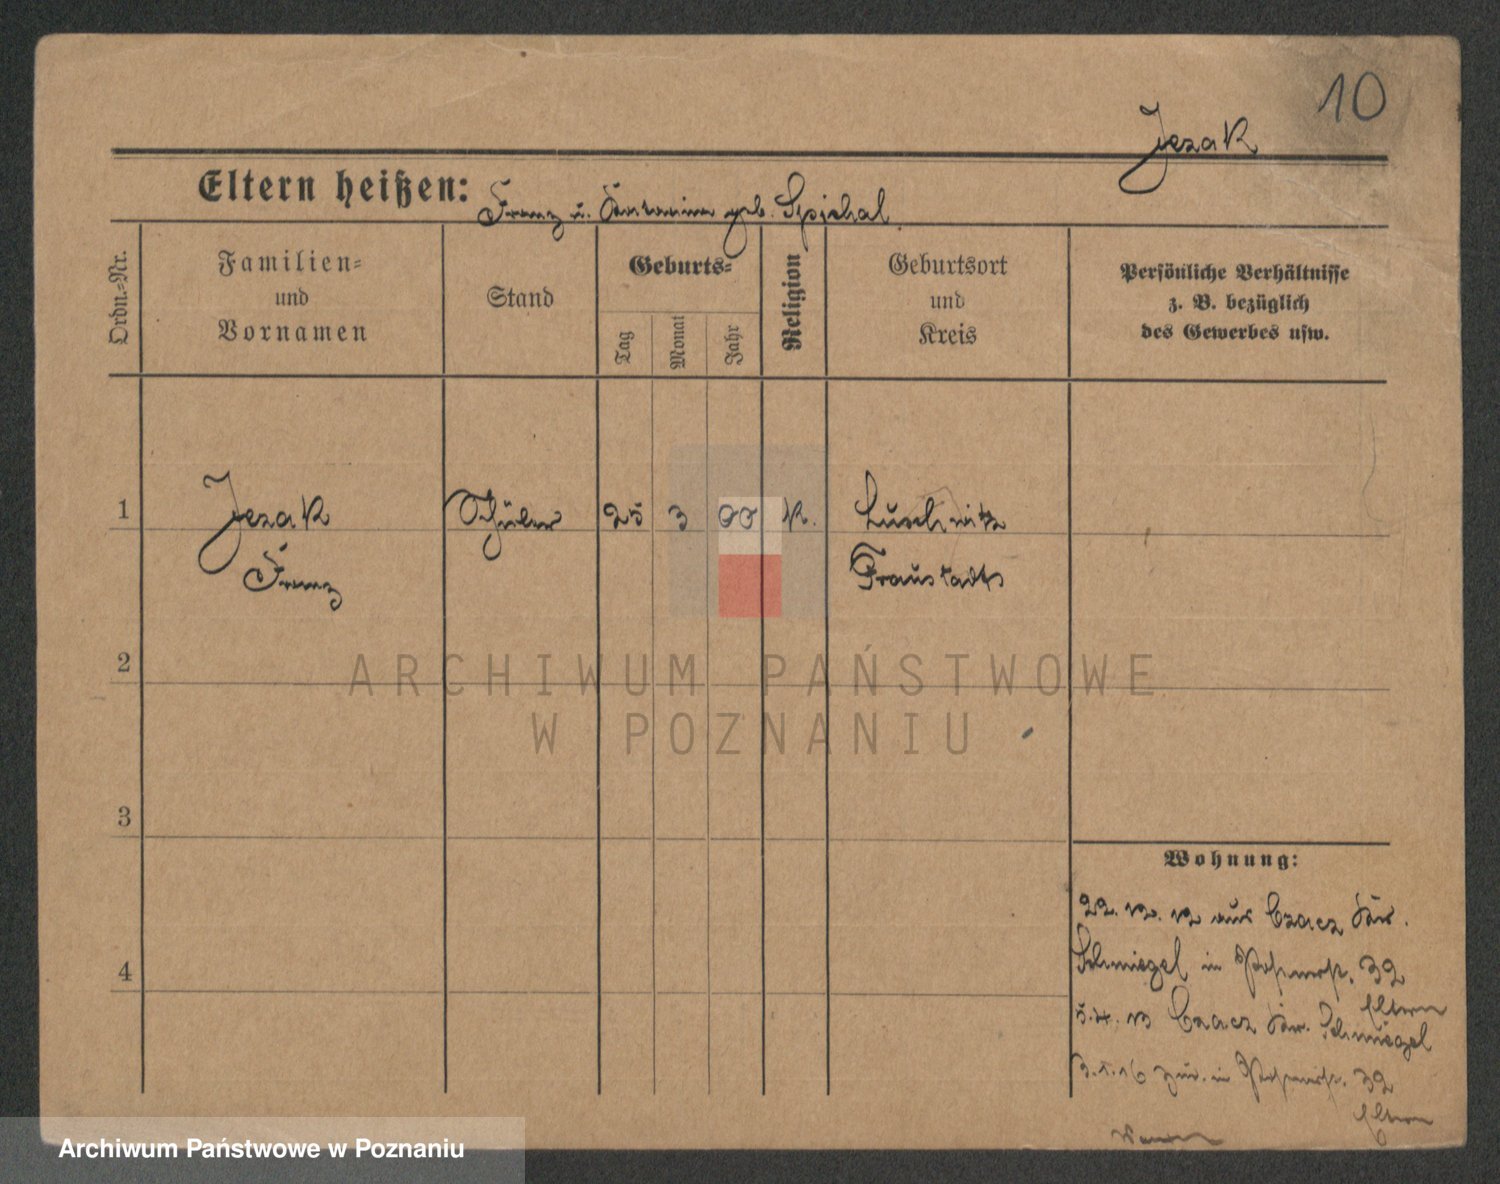 10
Jezak
Eltern heißen: Franz u. Antonina geb. Spichal
Ordn.-Nr.
Familien-
und
Vornamen
Stand
Geburts-
Tag
Monat
Jahr
Religion
Geburtsort
und
Kreis
Persönliche Verhältnisse
z. B. bezüglich
des Gewerbes usw.
1
Jezak
Franz
Schüler
25
3
00
k.
Luschwitz
Fraustadt
2
3
4
Wohnung:
22. 12. 12 aus Czacz Kr.
Schmiegel in 32
Eltern
5. 4. 13 Czacz Kr. Schmiegel
3. 1. 16 zur. in 32
Eltern
ARCHIWUM PAŃSTWOWE
W POZNANIU
Archiwum Państwowe w Poznaniu